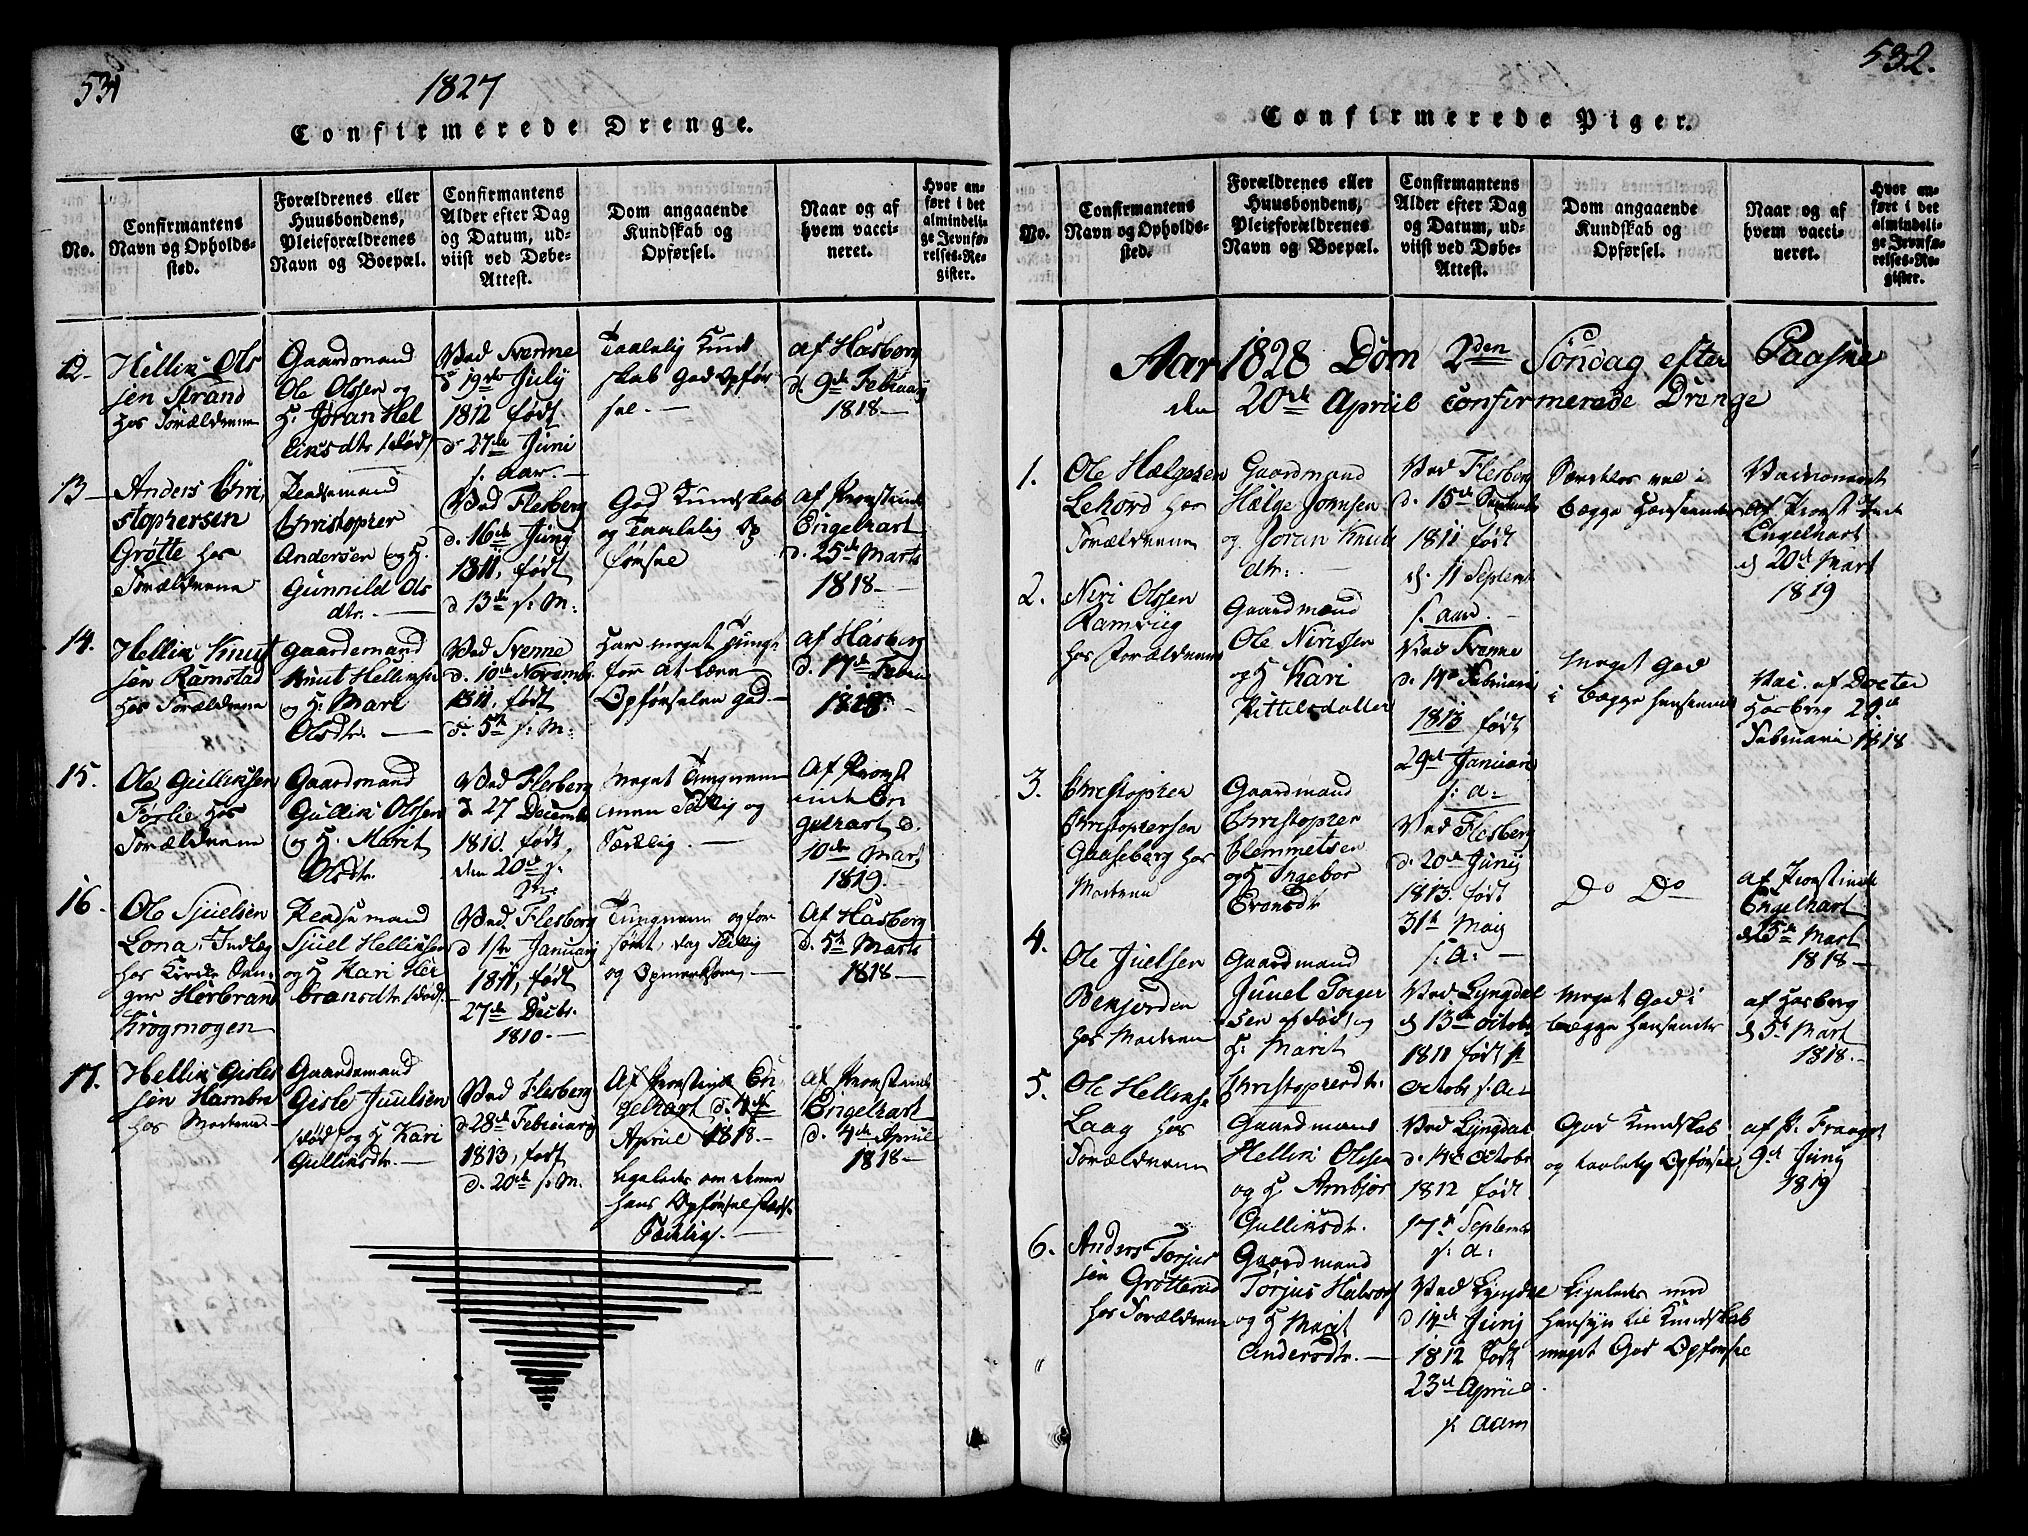 531
1827
Confirmerede Drenge.
No.
Confirmantens
Navn og Opholds-
sted.
Forældrenes eller
Huusbondens,
Pleieforældrenes
Navn og Boepæl.
Confirmantens
Alder efter Dag
og Datum, ud-
viist ved Døbe-
Attest.
Dom angaaende
Kundskab og
Opførsel.
Naar og af
hvem vacci-
neret.
Hvor an-
ført i det
almindeli-
ge Jevnfø-
relses-Re-
gister.
12
Hellik Ols
sen Strand
hos Forældrene
Gaardmand
Ole Olssen og
H: Jøran Hel
liksdtr (død)
Ved Svenne
d 19de July
1812 født
d 27de Juni
s. aar.
Taalelig Kund
skab God Opfør
sel.
af Hasberg
d. 9de Februarij
1818
13
Anders Chri
stophersen
Grøtte hos
Forældrene
Pladsemand
Christopher
Andersen og H.
Gunnild Ols
dtr.
Ved Flesberg
d. 16de Junij
1811, født
d 13de s: M:
God Kundskab
og Taalelig Op
førsel
af Provstinde
Engelhart
d. 25de Marts
1818
14.
Hellik Knut
sen Ramstad
hos Forældrene
Gaardemand
Knut Helliksen
og H: Mari
Olsdtr.
Ved Svenne
d. 10de Novembr.
1811, født
d. 5te s: M:
Har meget Tungt
for at Lære
Opførselen god
af Hasberg
d. 17de Febru
1818
15.
Ole Gulliksen
Førlie hos
Forældrene
Gaardmand
Gullik Olssen
og H. Marit
Olsdtr.
Ved Flesberg
d 27 Decemb
1810. født
den 20de s:
M:
Meget Tungnem
men Stillig og
Sædelig.
Af Provst
inde En
gelhart d.
10de Mart
1819.
16.
Ole Sjulsen
Lona, Indlæg
hos Kirke San
ger Herbrand
Krogmogen
Pladsemand
Sjuel Helliksen
og H Kari Her
bransdtr (død).
Ved Flesberg
d 1ste Januarij
1811, født
27de Decbr.
1810.
Tungnem og for
sømt, dog Stillig
og Opmerksom
Af Hasberg
d. 5te Marts
1818
17.
Hellik Gisles
sen Hambre
hos Moderen
Gaardemand
Gisle Juulsen
(død) og H Kari
Gulliksdtr.
Ved Flesberg
d 28de Februarij
1813, født
d. 20de s: M.
Af Provstinde En
gelhart d. 4de
Aprill 1818.
Ligeledes om denne
hans Opførsel
Sædelig.
af Provstinde
Engelhart
d. 4de Aprill
1818
532.
Confirmerede Piger.
No.
Confirmantens
Navn og Opholds-
sted.
Forældrenes eller
Huusbondens,
Pleieforældrenes
Navn og Boepæl.
Confirmantens
Alder efter Dag
og Datum, ud-
viist ved Døbe-
Attest.
Dom angaaende
Kundskab og
Opførsel.
Naar og af
hvem vacci-
neret.
Hvor an-
ført i det
almindeli-
ge Jevnfø-
relses-Re-
gister.
Aar 1828 Dom 2den Søndag efter Paaske
den 20de Apriil confirmerede Drenge
1.
Ole Hælgesen
Lehord hos
Forældrene
Gaardmand
Hælge Jonsen
og Joran Knuts
dtr:
Ved Flesberg
d. 15de Septemb
1811 født
d. 11 Septemb
s. aar.
Særdeles vel i
begge Henseender
Vaccineret
af Provstinde
Engelhart
d 20de Mart
1819
2.
Niri Olssen
Ramvig
hos Forældrene
Gaardmand
Ole Nirissen
og H Kari
Kittelsdatter
Ved Svenne
d. 14de Februari
1813 født
29de Januari
s: a:
Meget God
i begge Henseender
Vac. af Docter
Hasberg 29de
Februarii 1818
3.
Christopher
Christophersen
Gaaseberg hos
Moderen
Gaardmand
Christopher
Clemmetsen
og H Ingebor
Eronsdtr
Ved Flesberg
d. 20de Junij
1813. født
31te Maij
s: A:
Do Do
af Provstinde
Engelhart
d 15de Mart
1818
4.
Ole Juelsen
Benjorden
hos Moderen
Gaardmand
Juuel Torger
sen af død, og
H: Marit
Christophersdtr:
Ved Lyngdal
d 13de Octobr
1811 født 1te
Octobr s: A:
Meget God i
begge Henseender
af Hasberg
d 5te Mart
1818.
5.
Ole Helliks
Laag hos
Forældrene
Gaardmand
Hellik Olssen
og H. Ambjør
Gulliksdtr.
Ved Lyngdal
d. 14de Octobr
1812 født
17de Septembr
s. a:
God Kundskab
og taalelig Opførsel
af P. Fraagot
9de Junij
1819
6.
Anders Torjus
sen Grøtterud
hos Forældrene
Gaardmand
Torjus Halvors
og H Marit
Andersdtr.
Ved Lyngdal
d 14de Junij
1812 født
23de Apriil
s. aar
Ligeledes med
Hensyn til Kundskab
meget God Opførsel